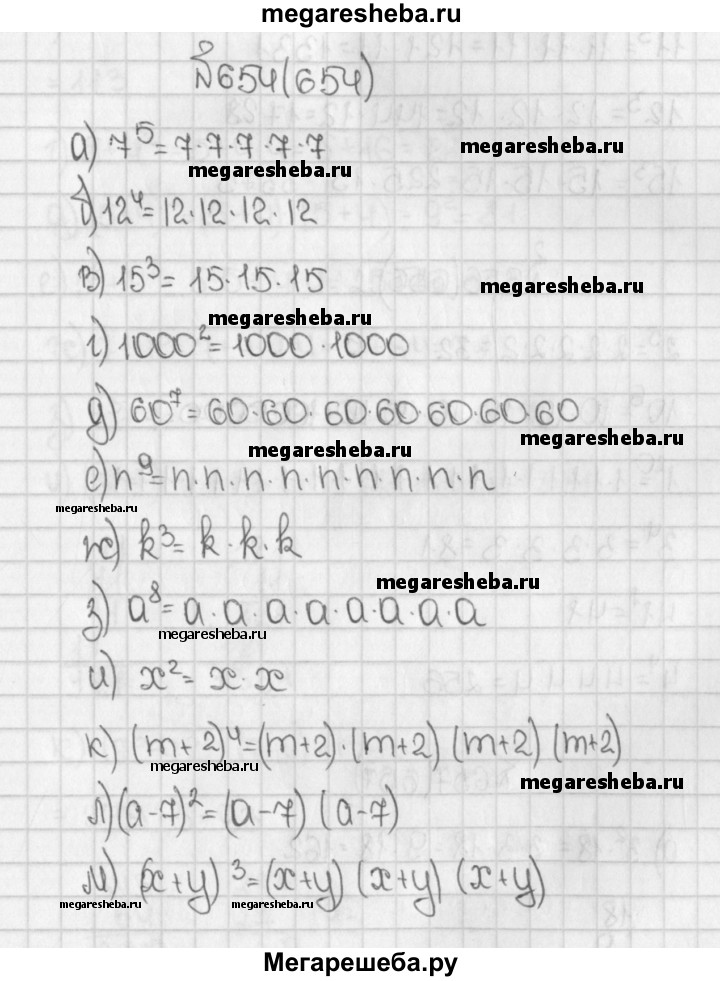 megaresheba.ru
№654(654)
а) 7⁵=7·7·7·7·7
megaresheba.ru
megaresheba.ru
б) 12⁴=12·12·12·12
в) 15³=15·15·15
megaresheba.ru
megaresheba.ru
г) 1000²=1000·1000
д) 60⁷=60·60·60·60·60·60·60
megaresheba.ru
megaresheba.ru
е) n⁹=n·n·n·n·n·n·n·n·n
megaresheba.ru
ж) k³=k·k·k
megaresheba.ru
з) a⁸=a·a·a·a·a·a·a·a
megaresheba.ru
и) x²=x·x
к) (m+2)⁴=(m+2)·(m+2)(m+2)(m+2)
megaresheba.ru
megaresheba.ru
л) (a-7)²=(a-7)(a-7)
м) (x+y)³=(x+y)(x+y)(x+y)
megaresheba.ru megaresheba.ru
Мегарешеба.ру